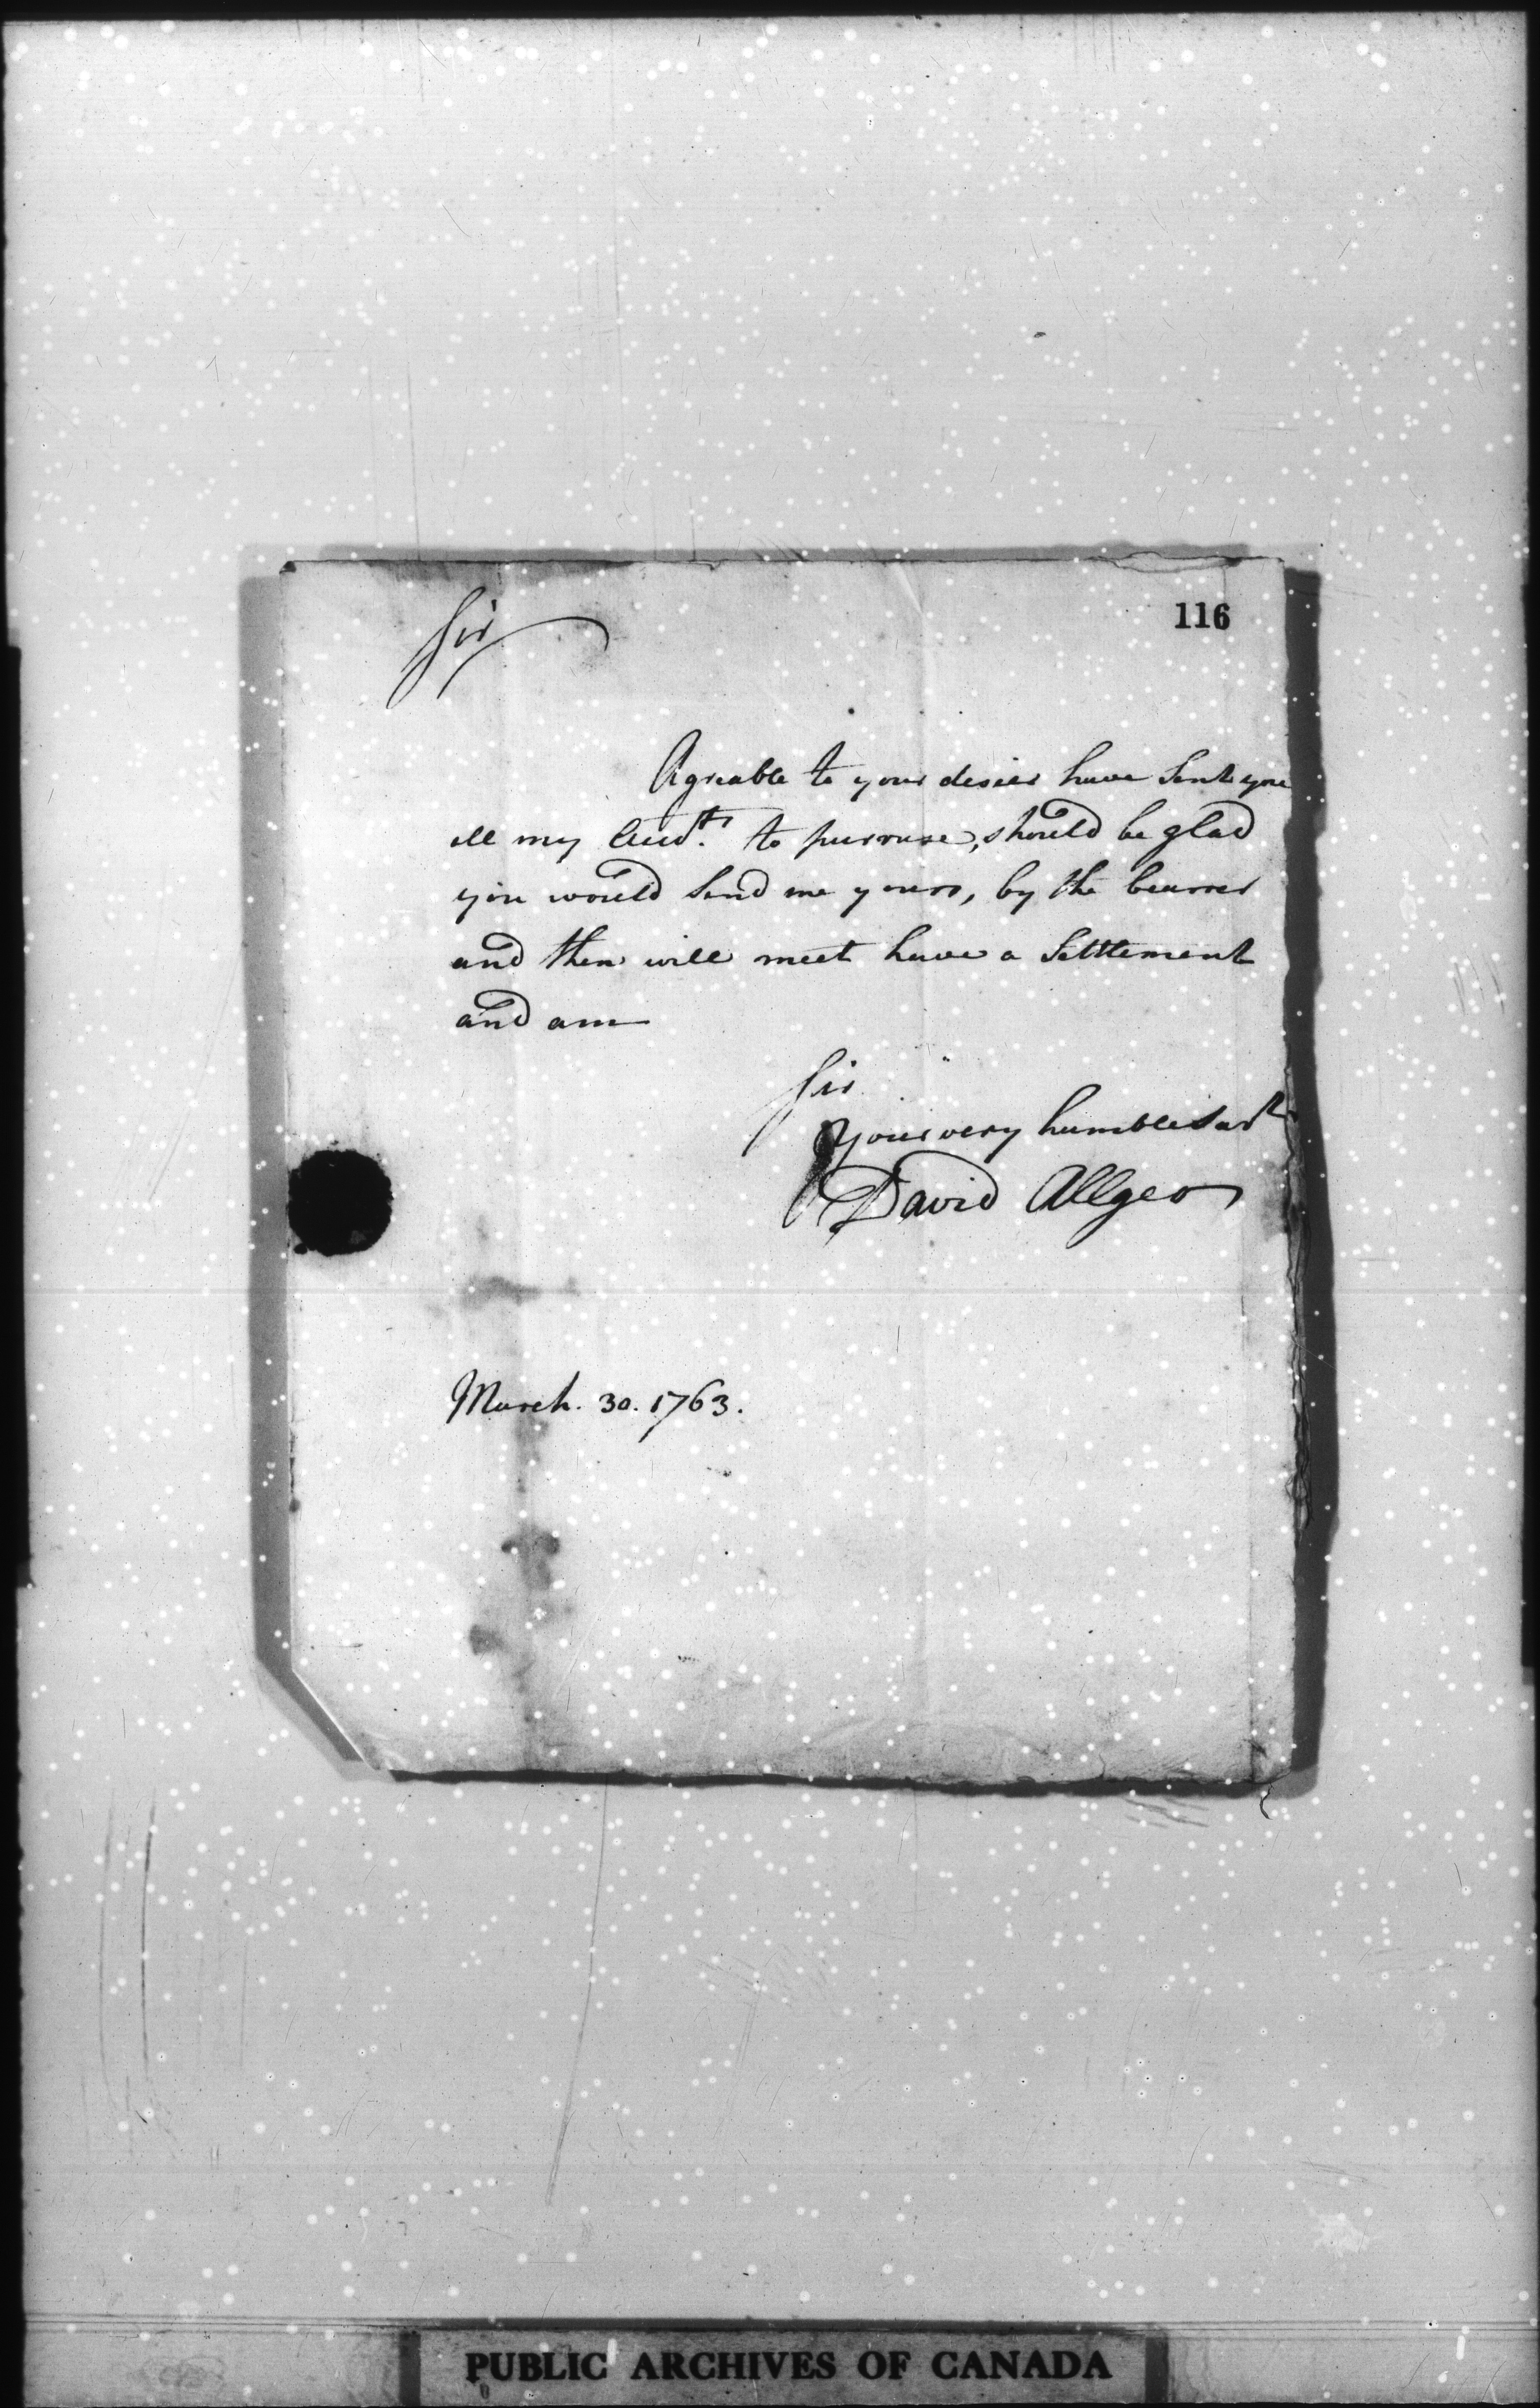 116
Sir
Agreable to your desier have Sent you
all my to pursuse, should be glad
you would Send me yours, by the bearrer
and then will meet have a Settlement
and am
Sir
Your very humble Sart
David Allgeo
March. 30. 1763.
PUBLIC ARCHIVES OF CANADA